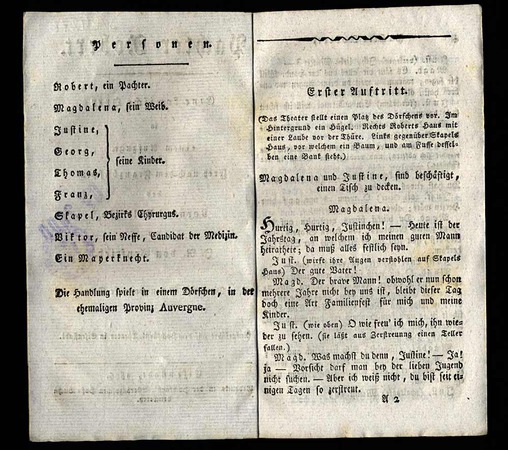 Personen.
Robert, ein Pachter.
Magdalena, sein Weib.
Justine,
Georg,
Thomas,
Franz,
seine Kinder.
Skapel, Bezirks Chyrurgus.
Viktor, sein Neffe, Candidat der Medizin.
Ein Mayerknecht.
Die Handlung spielt in einem Dörfchen, in der
ehemaligen Provinz Auvergne.
Erster Auftritt.
(Das Theater stellt einen Platz des Dörfchens vor. Im
Hintergrund ein Hügel. Rechts Roberts Haus mit
einer Laube vor der Thüre. Links gegenüber Skapels
Haus, vor welchem ein Baum, und am Fusse dessel-
ben eine Bank steht.)
Magdalena und Justine, sind beschäftigt,
einen Tisch zu decken.
Magdalena.
Hurtig, Hurtig, Justinchen! — Heute ist der
Jahrstag, an welchem ich meinen guten Mann
heirathete; da muß alles festlich seyn.
Just. (wirft ihre Augen verstohlen auf Skapels
Haus) Der gute Vater!
Magd. Der brave Mann! obwohl er nun schon
mehrere Jahre nicht bey uns ist, bleibt dieser Tag
doch eine Art Familienfest für mich und meine
Kinder.
Just. (wie oben) O wie freu' ich mich, ihn wie-
der zu sehen. (sie läßt aus Zerstreuung einen Teller
fallen.)
Magd. Was machst du denn, Justine! — Ja!
ja — Vorsicht darf man bey der lieben Jugend
nicht suchen. — Aber ich weiß nicht, du bist seit ei-
nigen Tagen so zerstreut.
A 2